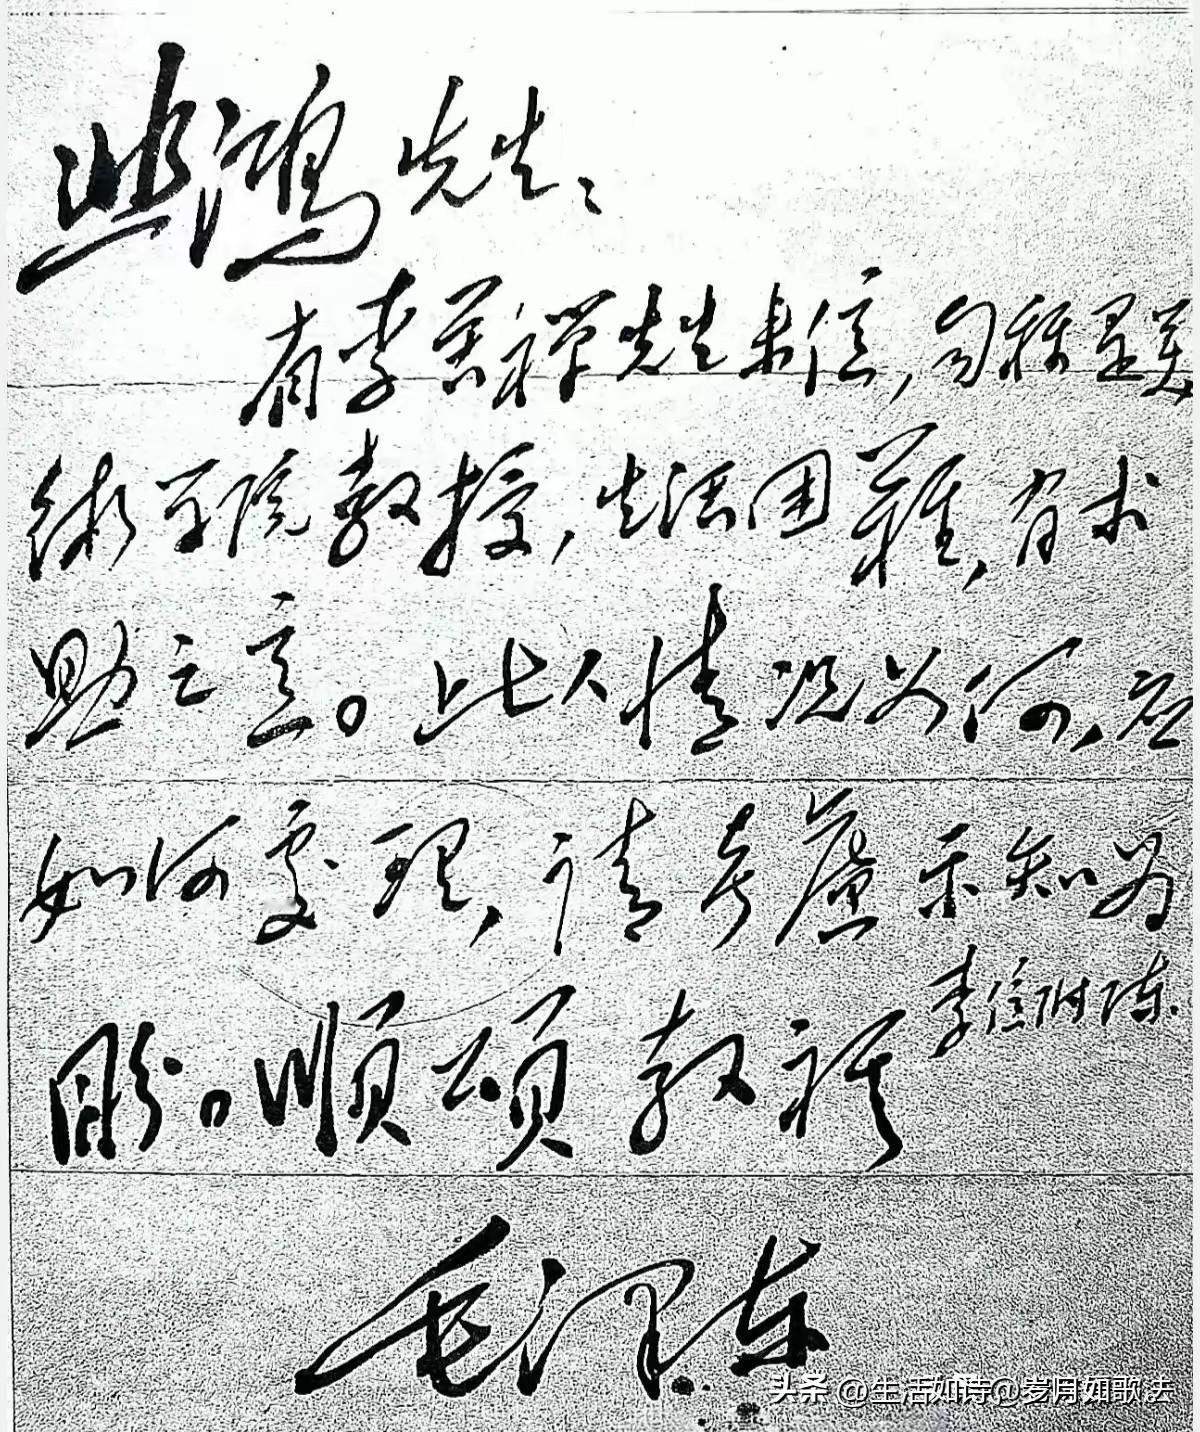 悲鸿先生：
有李苦禅先生来信，自称是美
術学院教授，生活困難，有求
助之意。此人情况如何，应
如何處理，请考慮示知为
盼。順頌教祺
李信附陈.
毛泽东
头条 @生活如诗@岁月如歌 去